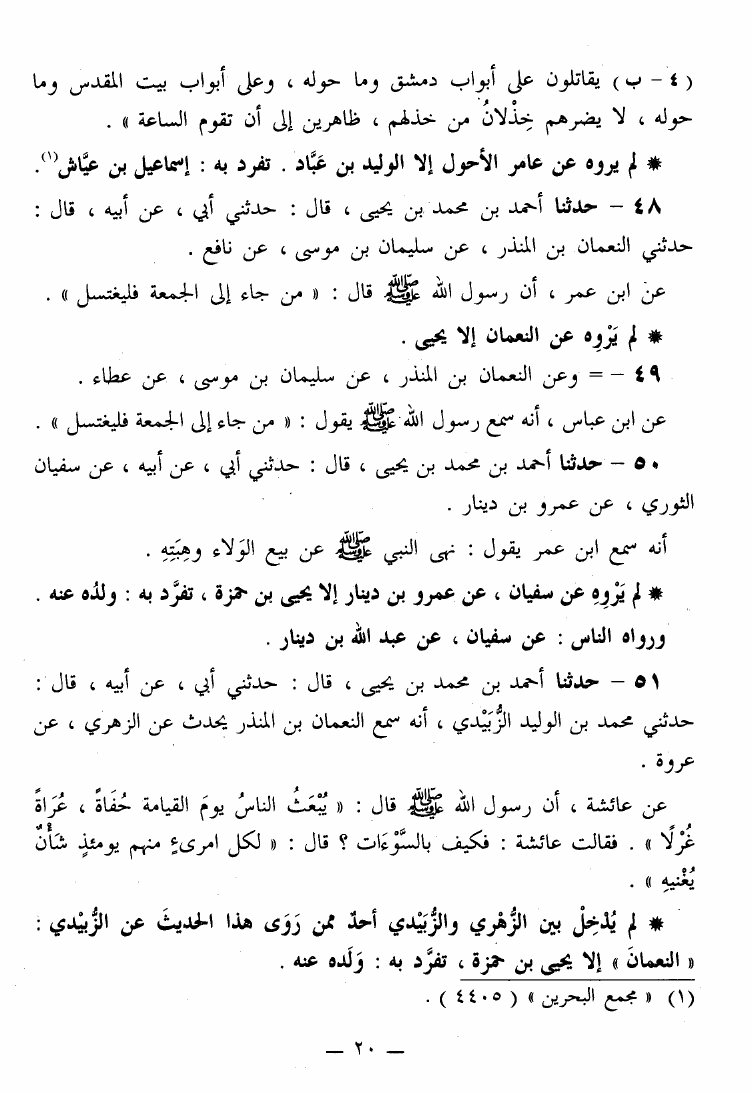 ( ٤ - ب ) يقاتلون على أبواب دمشق وما حوله ، وعلى أبواب بيت المقدس وما
حوله ، لا يضرهم خِذْلانُ من خذلهم ، ظاهرين إلى أن تقوم الساعة » .
* لم يروه عن عامر الأحول إلا الوليد بن عَبَّاد . تفرد به : إسماعيل بن عيَّاش(١).
٤٨ - حدثنا أحمد بن محمد بن يحيى ، قال : حدثني أبي ، عن أبيه ، قال :
حدثني النعمان بن المنذر ، عن سليمان بن موسى ، عن نافع .
عن ابن عمر ، أن رسول الله ﷺ قال : « من جاء إلى الجمعة فليغتسل » .
* لم يَرْوِه عن النعمان إلا يحيى .
٤٩ - = وعن النعمان بن المنذر ، عن سليمان بن موسى ، عن عطاء .
عن ابن عباس ، أنه سمع رسول الله ﷺ يقول : « من جاء إلى الجمعة فليغتسل » .
٥٠ - حدثنا أحمد بن محمد بن يحيى ، قال : حدثني أبي ، عن أبيه ، عن سفيان
الثوري ، عن عمرو بن دينار .
أنه سمع ابن عمر يقول : نهى النبي ﷺ عن بيع الوَلاء وهِبَتِهِ .
* لم يَرْوِهِ عن سفيان ، عن عمرو بن دينار إلا يحيى بن حمزة ، تفرَّد به : ولدُه عنه .
ورواه الناس : عن سفيان ، عن عبد الله بن دينار .
٥١ - حدثنا أحمد بن محمد بن يحيى ، قال : حدثني أبي ، عن أبيه ، قال :
حدثني محمد بن الوليد الزُّبَيْدي ، أنه سمع النعمان بن المنذر يحدث عن الزهري ، عن
عروة .
عن عائشة ، أن رسول الله ﷺ قال : « يُبْعَثُ الناسُ يومَ القيامة حُفَاةً ، عُرَاةً
غُرْلًا » . فقالت عائشة : فكيف بالسَّوْءَات ؟ قال : « لكل امرىءٍ منهم يومئذٍ شَأْنٌ
يُغْنيهِ » .
* لم يُدْخِلْ بين الزُّهْري والزُّبَيْدي أحدٌ ممن رَوَى هذا الحديثَ عن الزُّبيْدي :
« النعمانَ » إلا يحيى بن حمزة ، تفرَّد به : وَلَده عنه .
(١) « مجمع البحرين » ( ٤٤٠٥ ) .
— ٢٠ —